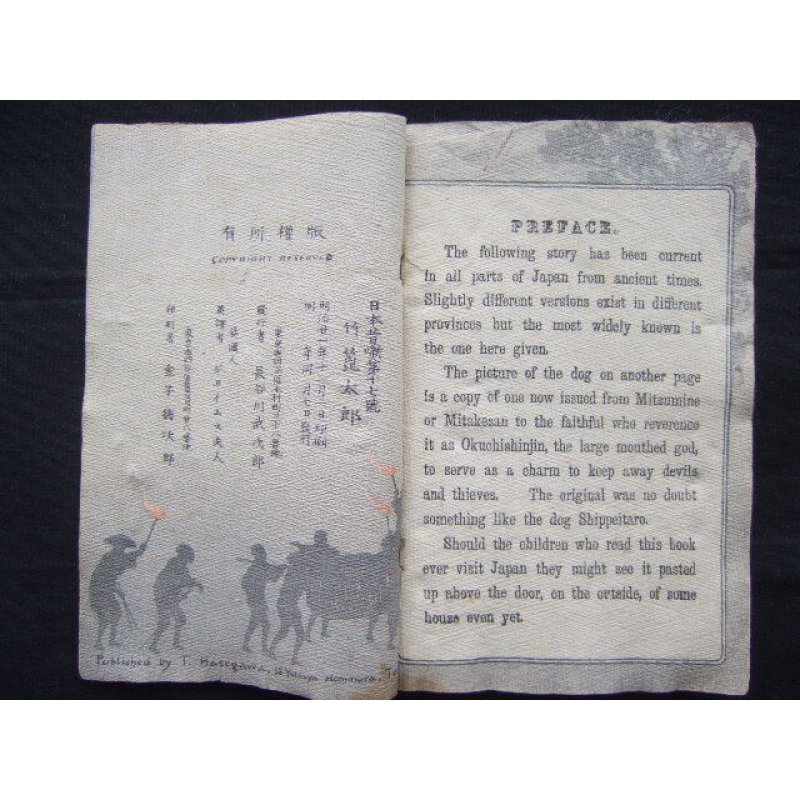 有所権版
COPYRIGHT RESERVED
日本昔噺第十七號
竹箆太郎
發行者 長谷川武次郎
英譯者 ジェイムス夫人
印刷者 金子徳次郎
Published by T. Hasegawa,
PREFACE.
The following story has been current
in all parts of Japan from ancient times.
Slightly different versions exist in different
provinces but the most widely known is
the one here given.
The picture of the dog on another page
is a copy of one now issued from Mitsumine
or Mitakesan to the faithful who reverence
it as Okuchishinjin, the large mouthed god,
to serve as a charm to keep away devils
and thieves. The original was no doubt
something like the dog Shippeitaro.
Should the children who read this book
ever visit Japan they might see it pasted
up above the door, on the ortside, of some
house even yet.